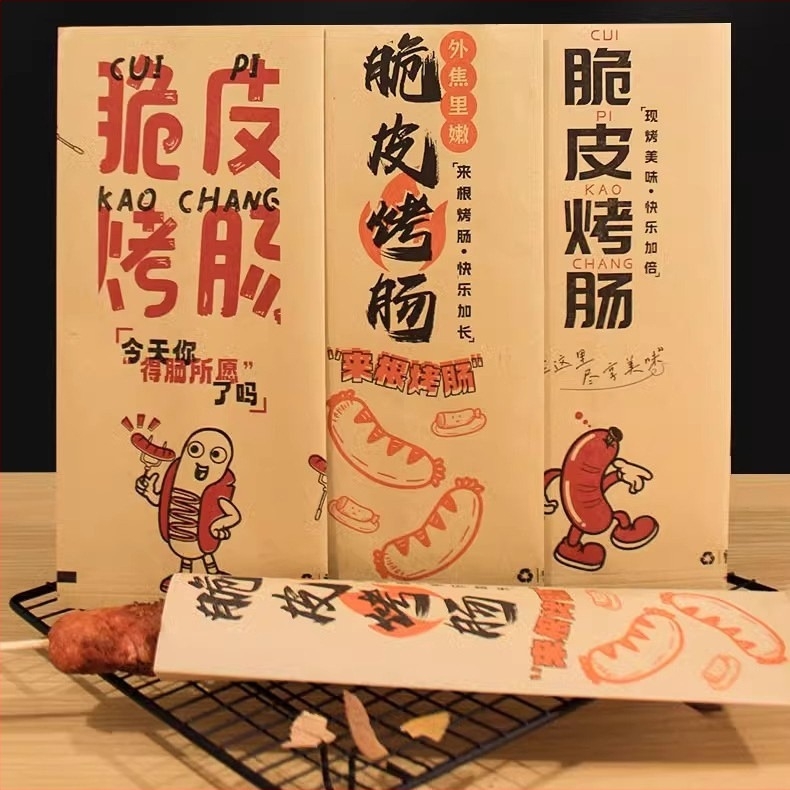 CUI PI
脆皮
KAO CHANG
烤肠
「今天你
“得脑所愿”
了吗」
脆皮烤肠
外焦里嫩
「来根烤肠·快乐加长」
“来根烤肠”
CUI
脆
PI
皮
KAO
烤
CHANG
肠
「现烤美味·快乐加倍」
这里
尽享美味
脆皮烤肠
“来根烤肠